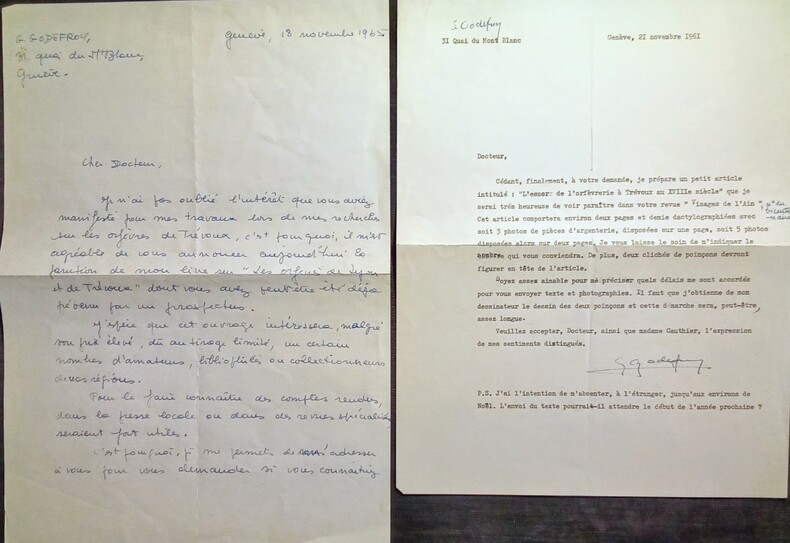 G. GODEFROY,
31 quai du Mt Blanc,
Genève.
Genève, 18 novembre 1965
Cher Docteur,
Je n'ai pas oublié l'intérêt que vous aviez
manifesté pour mes travaux lors de mes recherches
sur les orfèvres de Trévoux, c'est pourquoi, il m'est
agréable de vous annoncer aujourd'hui la
parution de mon livre sur "Les orfèvres de Lyon
et de Trévoux" dont vous avez peut-être été déjà
prévenu par un prospectus.
J'espère que cet ouvrage intéressera, malgré
son prix élevé, dû au tirage limité, un certain
nombre d'amateurs, bibliophiles ou collectionneurs
de vos régions.
Pour le faire connaître des comptes rendus,
dans la presse locale ou dans des revues spécialisées
seraient fort utiles.
C'est pourquoi, je me permets de m'adresser
à vous pour vous demander si vous connaîtriez
Godefroy
31 Quai du Mont Blanc
Genève, 21 novembre 1961
Docteur,
Cédant, finalement, à votre demande, je prépare un petit article
intitulé : "L'essor de l'orfèvrerie à Trévoux au XVIIIe siècle" que je
serai très heureuse de voir paraître dans votre revue " Visages de l'Ain ",
Cet article comportera environ deux pages et demie dactylographiées avec
soit 3 photos de pièces d'argenterie, disposées sur une page, soit 5 photos
disposées alors sur deux pages. Je vous laisse le soin de m'indiquer le
nombre qui vous conviendra. De plus, deux clichés de poinçons devront
figurer en tête de l'article.
Soyez assez aimable pour me préciser quels délais me sont accordés
pour vous envoyer texte et photographies. Il faut que j'obtienne de mon
dessinateur le dessin des deux poinçons et cette démarche sera, peut-être,
assez longue.
Veuillez accepter, Docteur, ainsi que madame Gauthier, l'expression
de mes sentiments distingués.
G Godefroy
P.S. J'ai l'intention de m'absenter, à l'étranger, jusqu'aux environs de
Noël. L'envoi du texte pourrait-il attendre le début de l'année prochaine ?